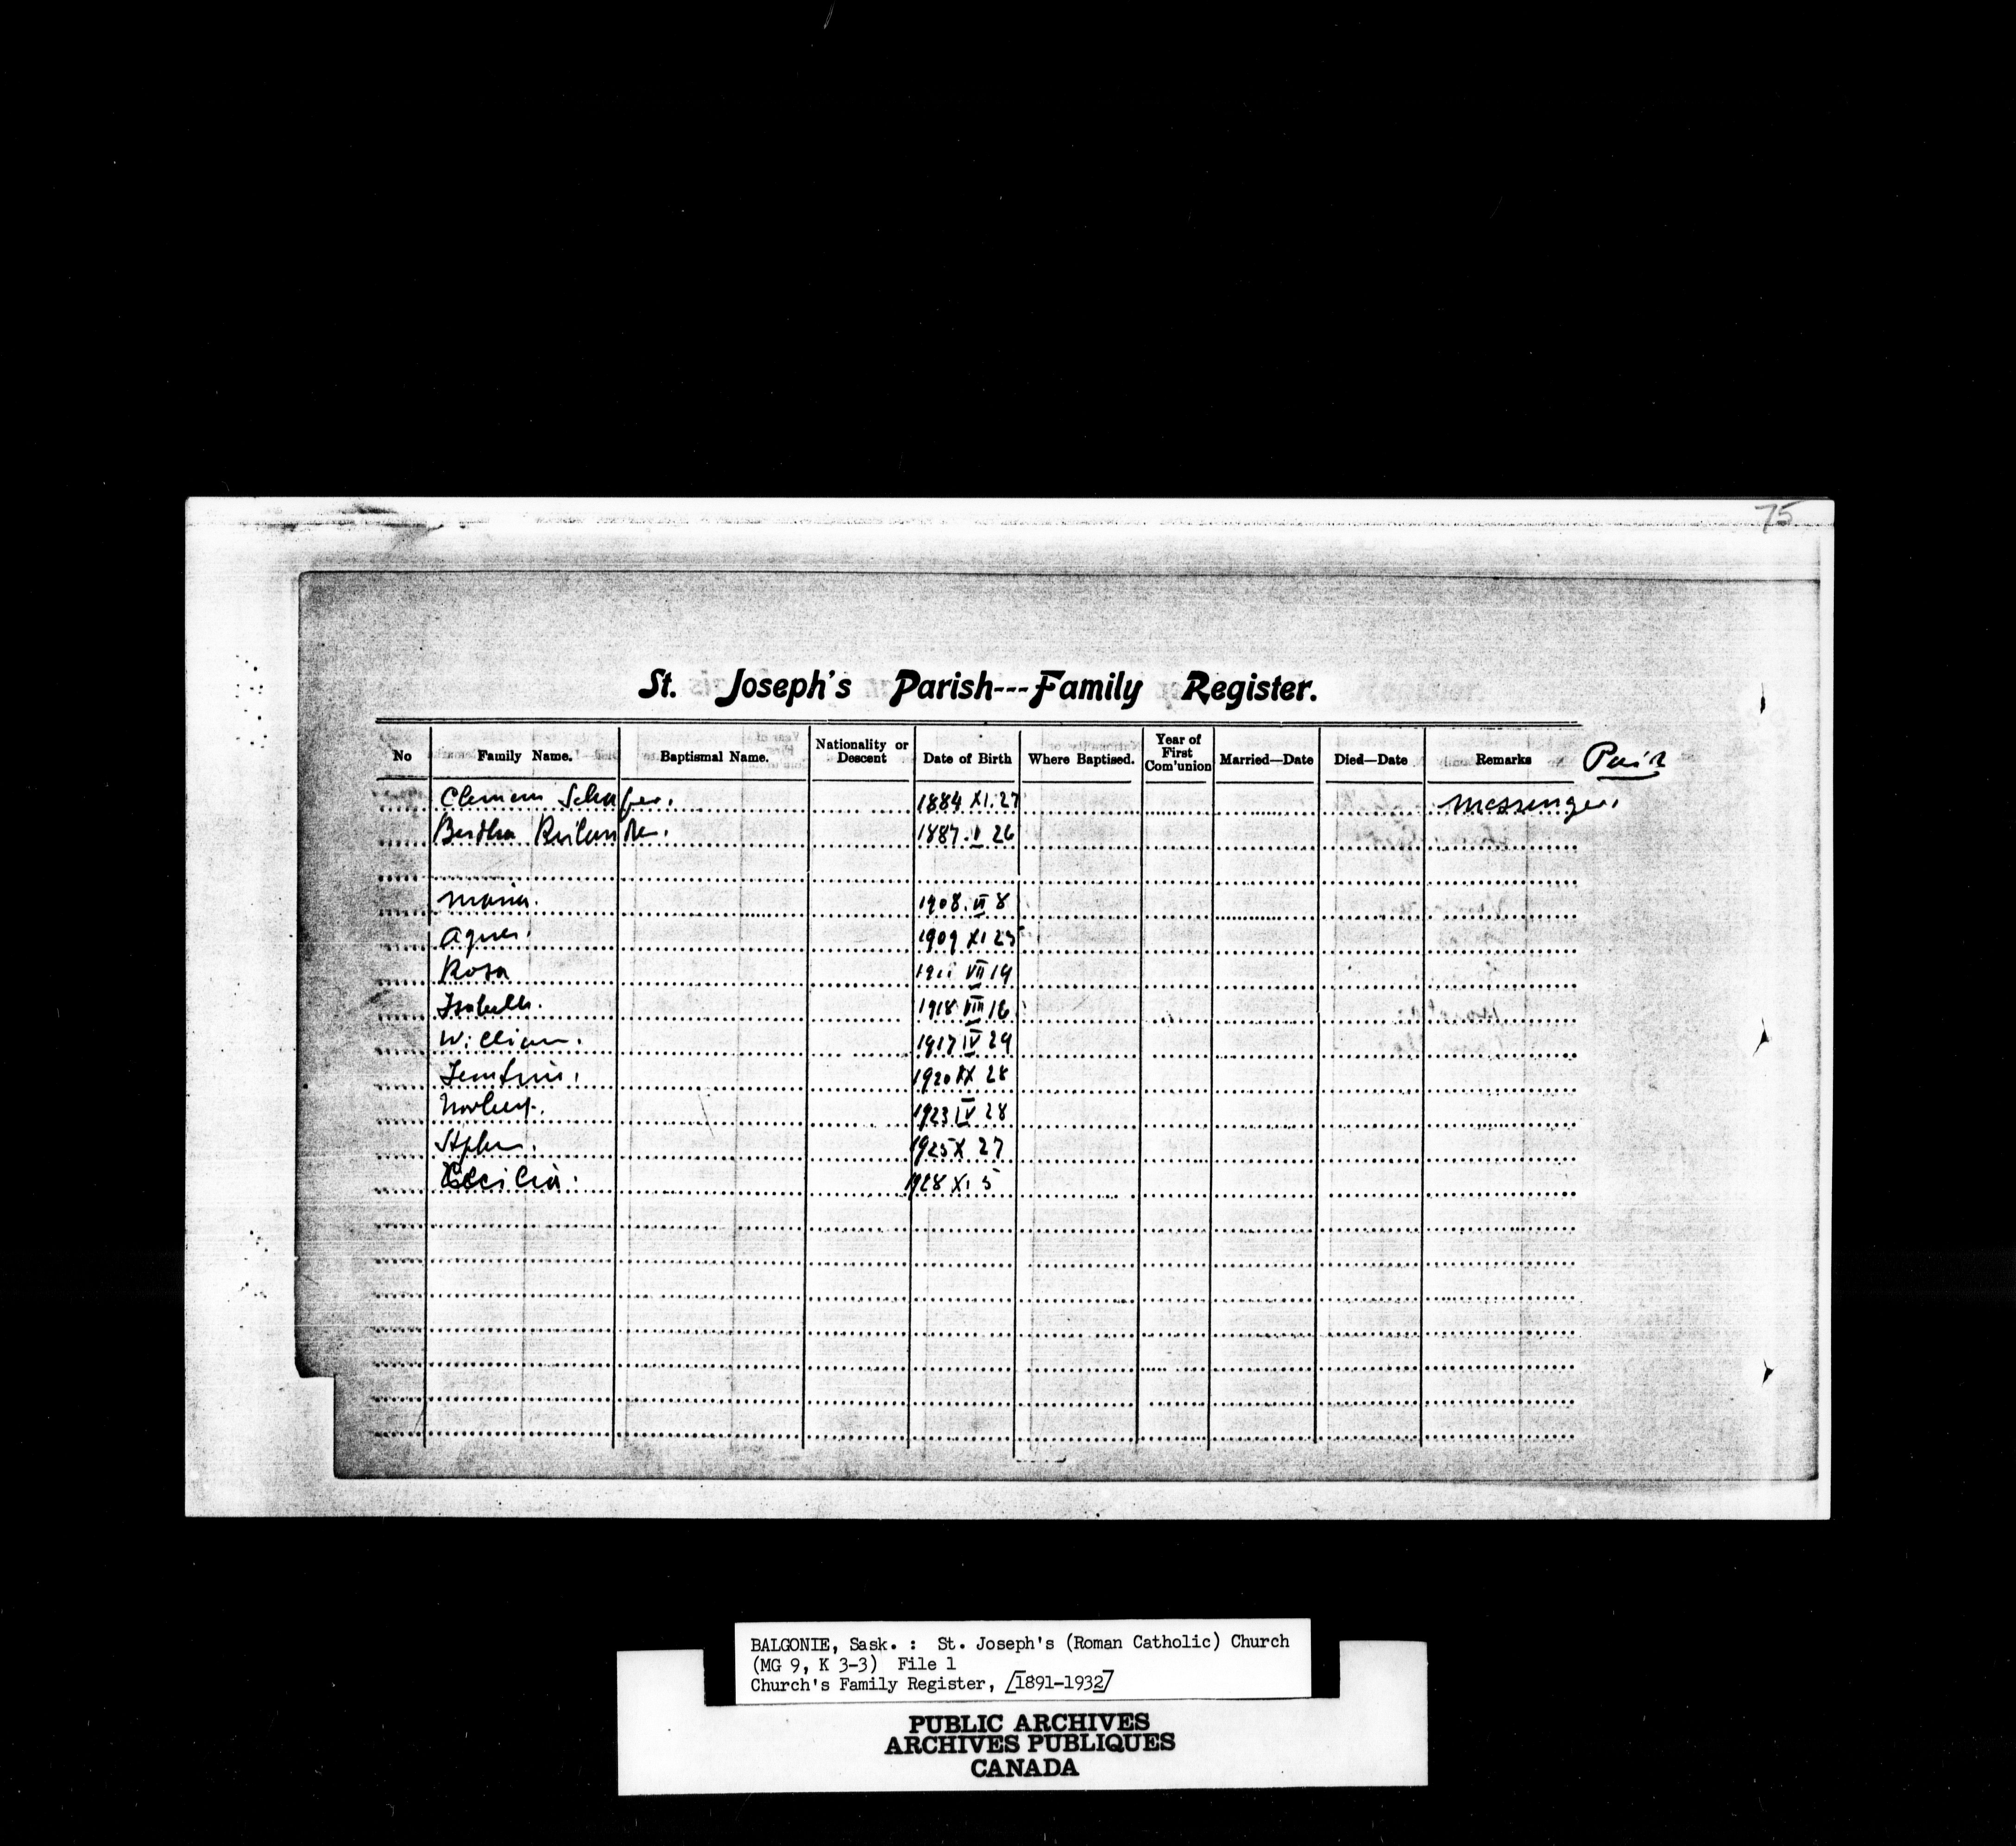 75
St. Joseph's Parish---Family Register.
No Family Name. Baptismal Name. Nationality or Descent Date of Birth Where Baptised. Year of First Com'union Married—Date Died—Date Remarks Paid
Clemens Schafer. 1884 XI. 27 Messenger.
Bertha 1887. V 26
Maria. 1908. VI 8
Agnes. 1909 XI 25
Rosa VII 19
Isabella. 1918 VIII 16
William. 1917 IV 29
1920 28
Norbert. 1923 IV 28
Stphen. 1925 X 27
Cecilia. 1928 XI 5
BALGONIE, Sask. : St. Joseph's (Roman Catholic) Church
(MG 9, K 3-3) File 1
Church's Family Register, [1891-1932]
PUBLIC ARCHIVES
ARCHIVES PUBLIQUES
CANADA